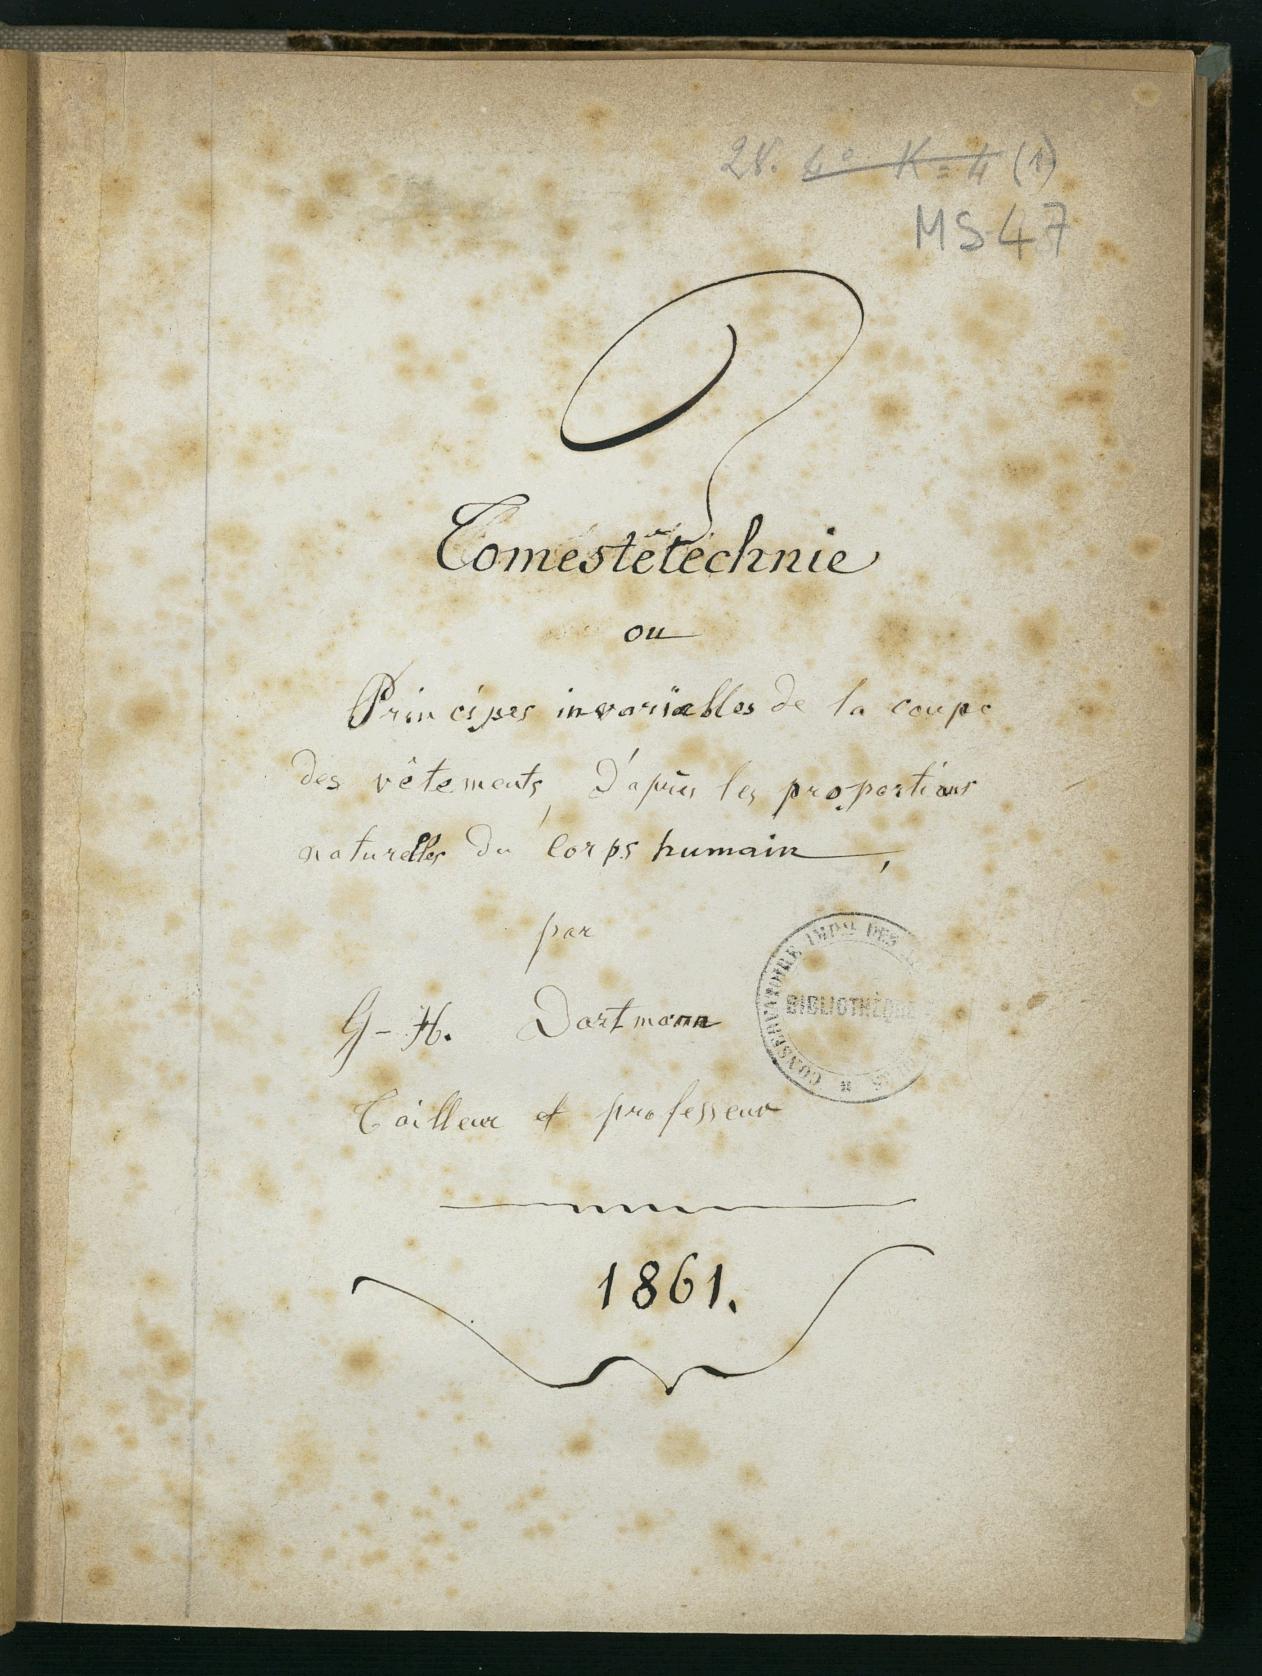 28. 4° K=4 (1)
MS 47
Tomestêtechnie
ou
Principes invariables de la coupe
des vêtements, d'après les proportions
naturelles du corps humain,
par
G-H. Dartmann
Tailleur et professeur
CONSERVATOIRE IMP^AL DES
BIBLIOTHÈQUE
1861.